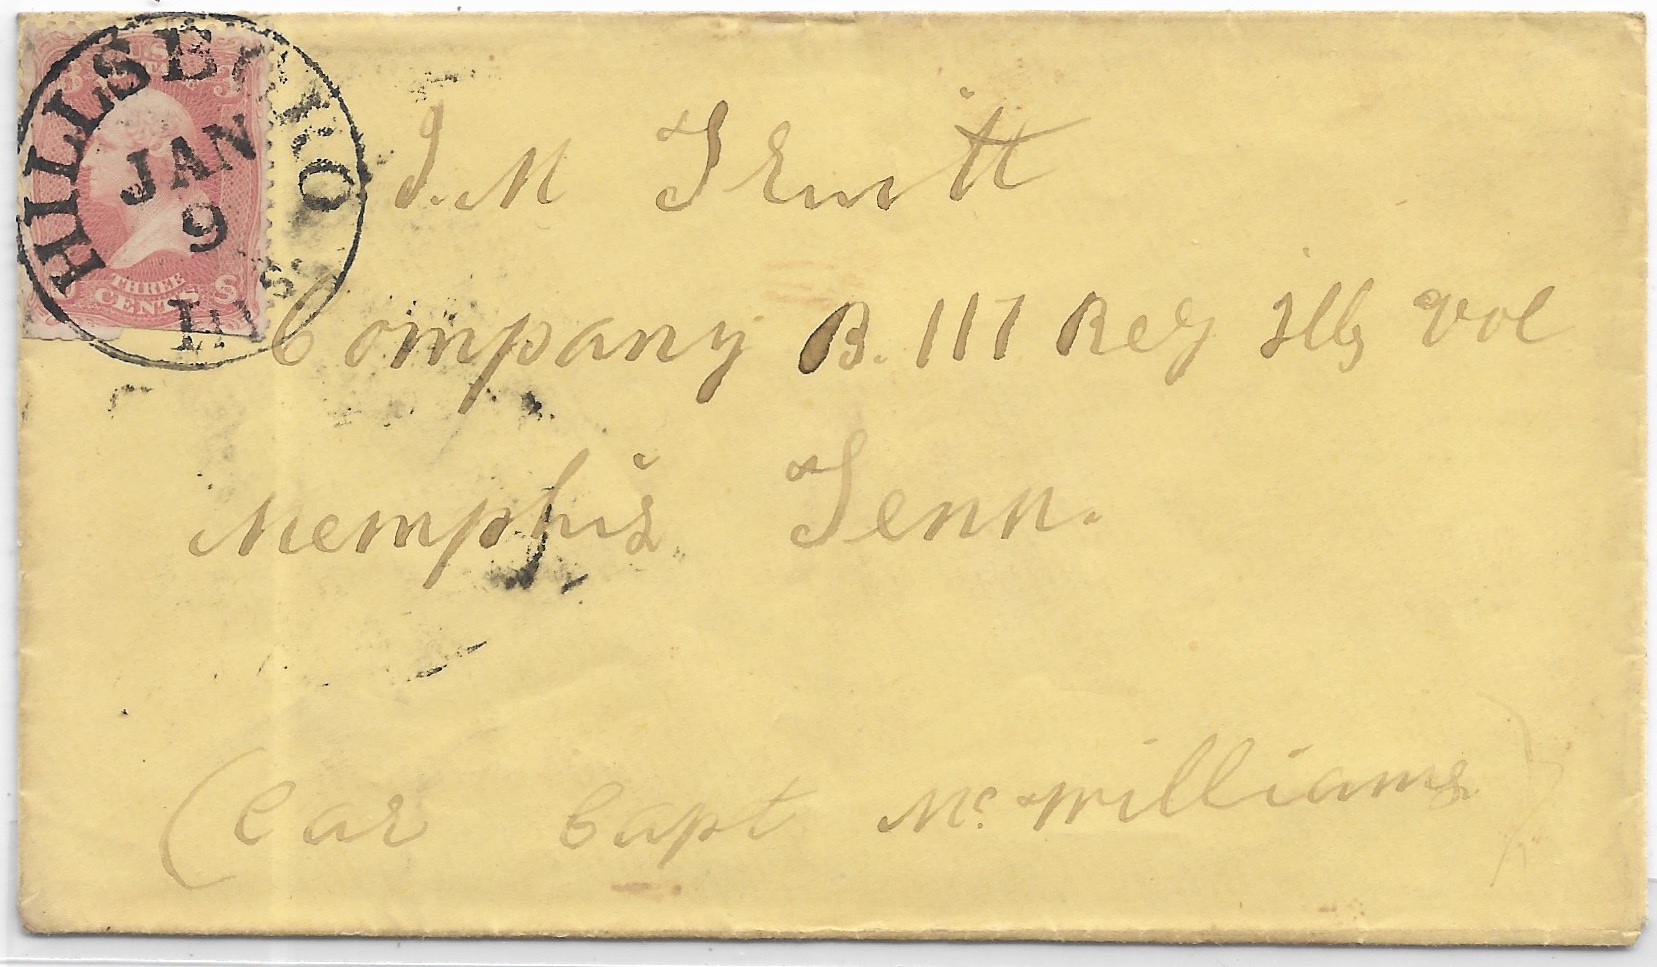 HILLSBORO
JAN
9
ILLS
U.S.
THREE
CENTS
J. M Truitt
Company B. 117 Reg Ills Vol
Memphis Tenn.
(Car Capt Mc Williams)